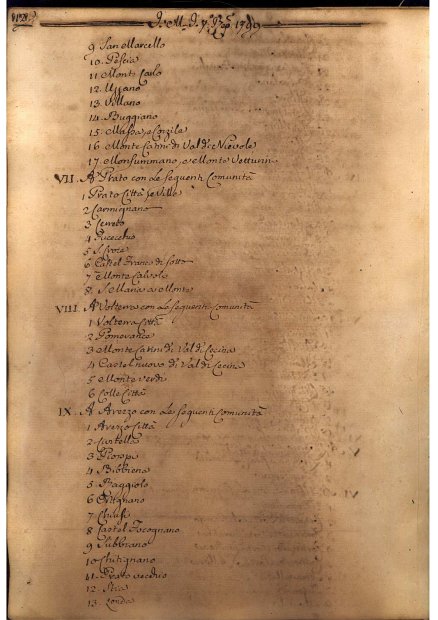 9 San Marcello
10. Pescia
11 Monte Carlo
12. Uzzano
13. Villano
14. Buggiano
15. Massa, e Cozzile
16 Monte Catini di Val di Nievole
17. Monsummano, e Monte Vetturini
VII. A Prato con le seguenti Comunità
1 Prato Città, e Ville
2 Carmignano
3 Cerreto
4 Fucecchio
5 S. Croce
6 Castel Franco di Sotto
7 Monte Calvoli
8. S. Maria a Monte
VIII. A Volterra con le seguenti Comunità
1 Volterra Città
2 Pomerance
3 Monte Catini di Val di Cecina
4 Castel nuovo di Val di Cecina
5 Monte verdi
6 Colle Città
IX. A Arezzo con le seguenti Comunità
1 Arezzo Città
2
3
4 Bibbiena
5 Raggiolo
6 Ortignano
7 Chiusi
8 Castel Focognano
9 Subbiano
10 Chitignano
11. Prato vecchio
12. Stia
13. Londa